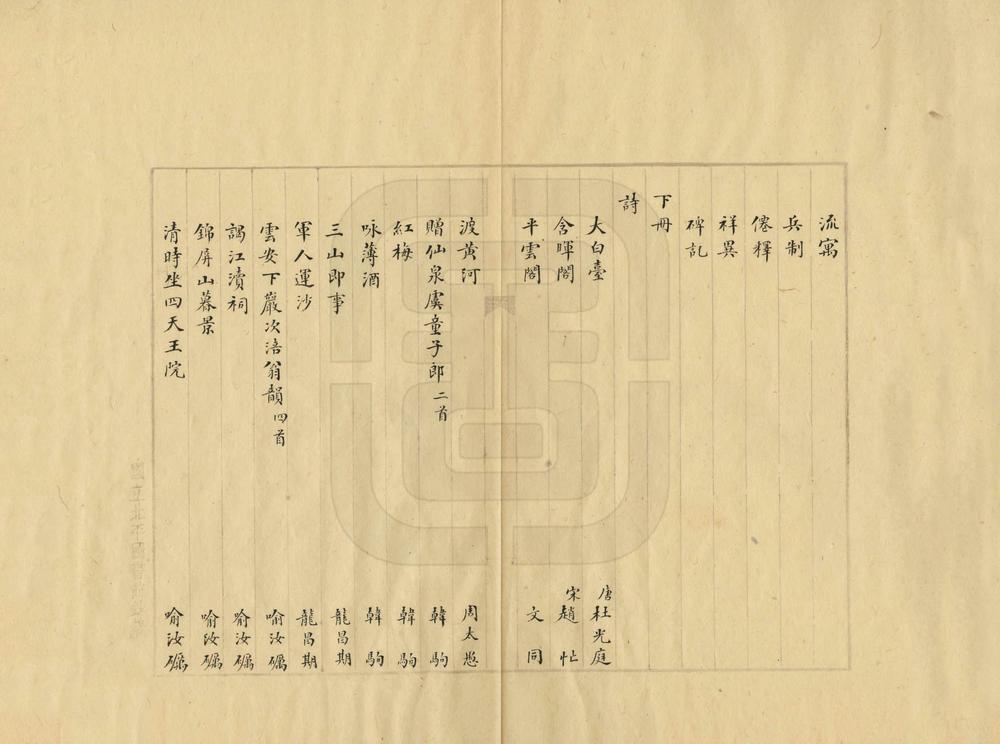 流寓
兵制
僊釋
祥異
碑記
下冊
詩
大白臺 唐杜光庭
含暉閣 宋趙忙
平雲閣 文同
波黃河 周太
贈仙泉虞童子郎二首 韓駒
紅梅 韓駒
咏薄酒 韓駒
三山即事 龍昌期
軍人運沙 龍昌期
雲安下巖次涪翁韻四首 喻汝礪
謁江瀆祠 喻汝礪
錦屏山暮景 喻汝礪
清時坐四天王院 喻汝礪